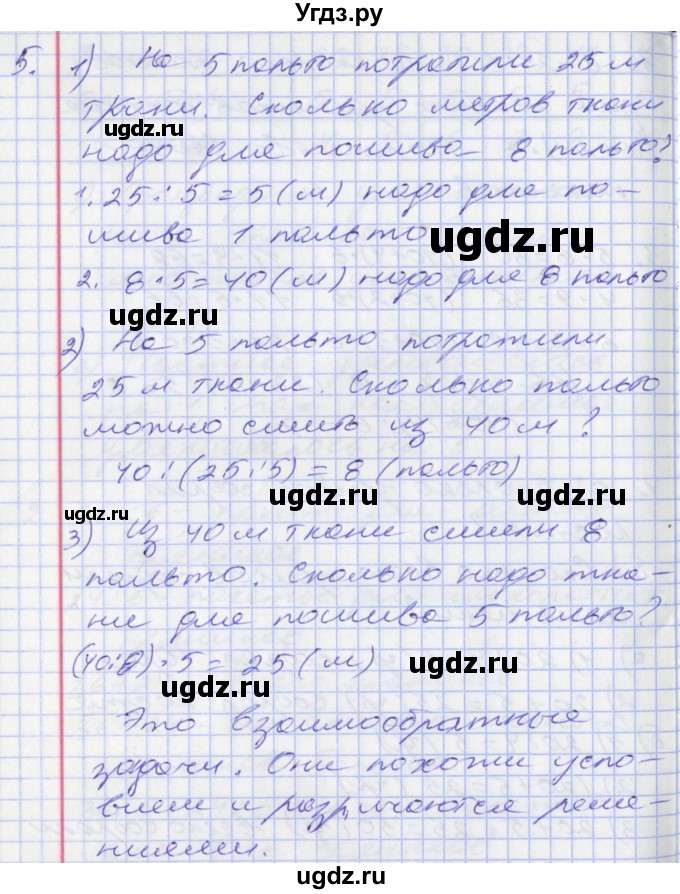 Угдз.ру
5. 1) На 5 пальто потратили 25 м
ткани. Сколько метров ткани
ugdz.ru
надо для пошива 8 пальто?
1. 25 : 5 = 5 (м) надо для по-
шива 1 пальто
ugdz.ru
2. 8 · 5 = 40 (м) надо для 8 пальто
ugdz.ru
2) На 5 пальто потратили
25 м ткани. Сколько пальто
можно сшить из 40 м?
40 : (25 : 5) = 8 (пальто)
ugdz.ru ugdz.ru
ugdz.ru
3) Из 40 м ткани сшили 8
пальто. Сколько надо тка-
ни для пошива 5 пальто?
(40 : 8) · 5 = 25 (м)
ugdz.ru
ugdz.ru
Это взаимообратные
задачи. Они похожи усло-
вием и различаются реше-
ниями.
ugdz.ru
Угдз.ру